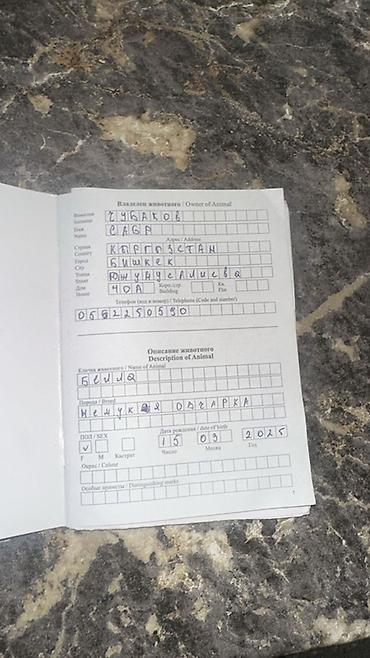 Владелец животного / Owner of Animal
Фамилия ЧУБАКОВ
Surname
Имя САБР
Name
Адрес / Address
Страна КЫРГЫЗСТАН
Country
Город БИШКЕК
City
Улица Юнусалиева
Street
Дом 40А Корп./стр. Кв.
House Building Flat
Телефон (код и номер) / Telephone (Code and number)
0582250590
Описание животного
Description of Animal
Кличка животного / Name of Animal
Белла
Порода / Breed
ОВЧАРКА
ПОЛ / SEX Дата рождения / date of birth
✓ 15 03 2025
F M Кастрат Число Месяц Год
Окрас / Colour
Особые приметы / Distinguishing marks
7